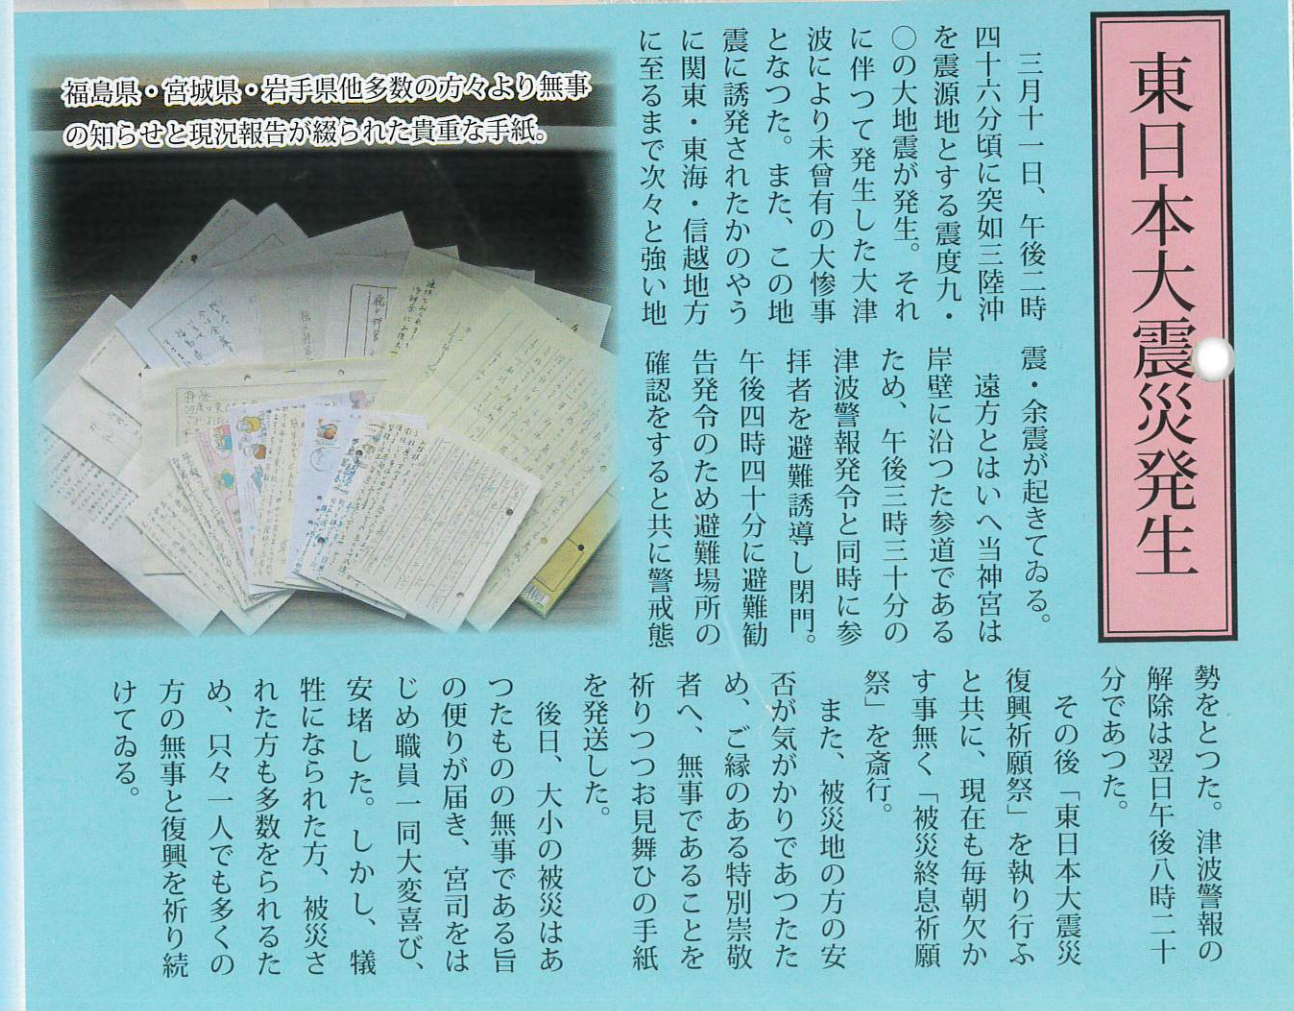 東日本大震災発生
三月十一日、午後二時
四十六分頃に突如三陸沖
を震源地とする震度九・
〇の大地震が発生。それ
に伴つて発生した大津
波により未曾有の大惨事
となつた。また、この地
震に誘発されたかのやう
に関東・東海・信越地方
に至るまで次々と強い地
震・余震が起きてゐる。
遠方とはいへ当神宮は
岸壁に沿つた参道である
ため、午後三時三十分の
津波警報発令と同時に参
拝者を避難誘導し閉門。
午後四時四十分に避難勧
告発令のため避難場所の
確認をすると共に警戒態
勢をとつた。津波警報の
解除は翌日午後八時二十
分であつた。
その後「東日本大震災
復興祈願祭」を執り行ふ
と共に、現在も毎朝欠か
す事無く「被災終息祈願
祭」を斎行。
また、被災地の方の安
否が気がかりであつたた
め、ご縁のある特別崇敬
者へ、無事であることを
祈りつつお見舞ひの手紙
を発送した。
後日、大小の被災はあ
つたものの無事である旨
の便りが届き、宮司をは
じめ職員一同大変喜び、
安堵した。しかし、犠
牲になられた方、被災さ
れた方も多数をられるた
め、只々一人でも多くの
方の無事と復興を祈り続
けてゐる。
福島県・宮城県・岩手県他多数の方々より無事
の知らせと現況報告が綴られた貴重な手紙。